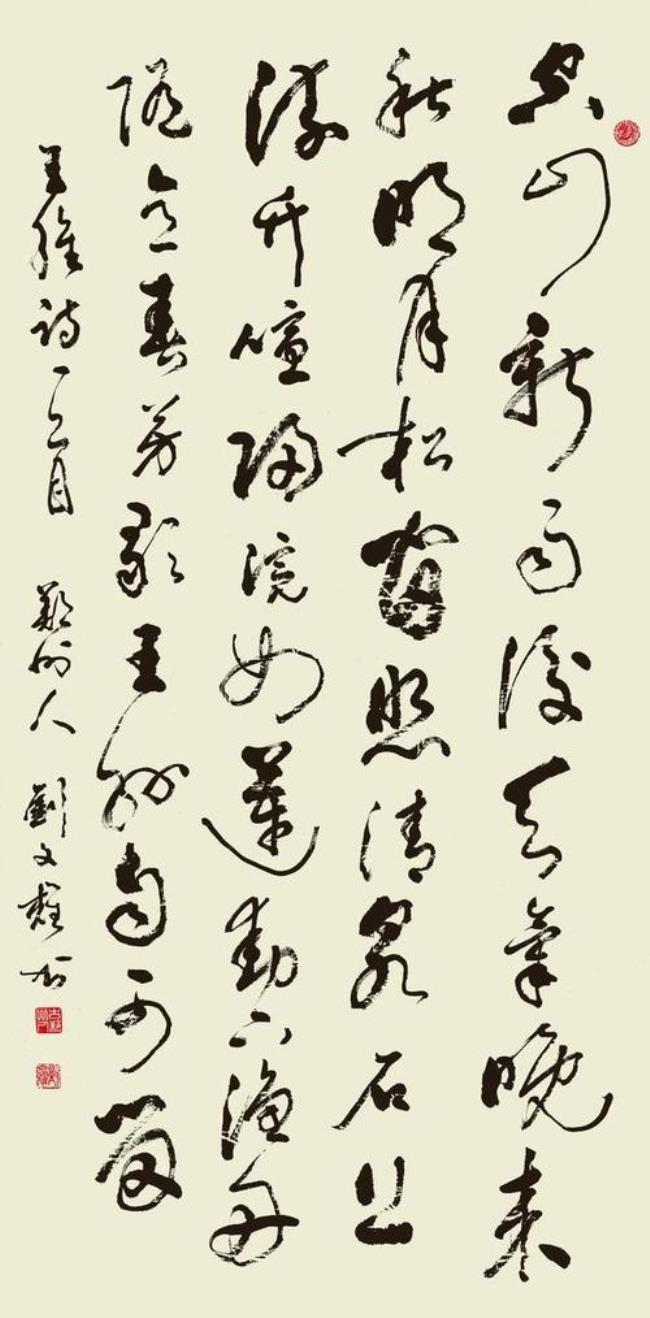 空山新雨後天氣晚來
秋明月松間照清泉石上
流竹喧歸浣女蓮動下漁舟
隨意春芳歇王孫自可留
王維詩一首 鄭州人 劉文